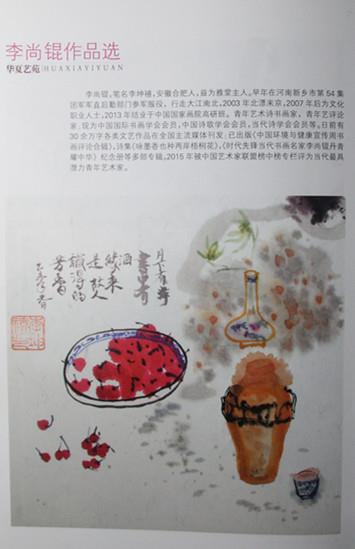 李尚锟作品选
华夏艺苑 HUAXIAYIYUAN
李尚锟，笔名李坤禧，安徽合肥人，益为雅堂主人。早年在河南新乡市第 54 集
团军军直后勤部门参军服役，行走大江南北，2003 年北漂来京，2007 年后为文化
职业人士，2013 年结业于中国国家画院高研班。青年艺术诗书画家、青年艺评论
家；现为中国国际书画学会会员，中国诗歌学会会员，当代诗学会会员等。目前有
30 余万字各类文艺作品在全国主流媒体刊发；已出版《中国环境与健康宣传周书
画评论合辑》，诗集《咏墨香也种两岸梧桐花》，《时代先锋当代书画名家李尚锟丹青
耀中华》纪念册等多部专辑，2015 年被中国艺术家联盟榜中榜专栏评为当代最具
潜力青年艺术家。
月下有
酒
是故人
芳香